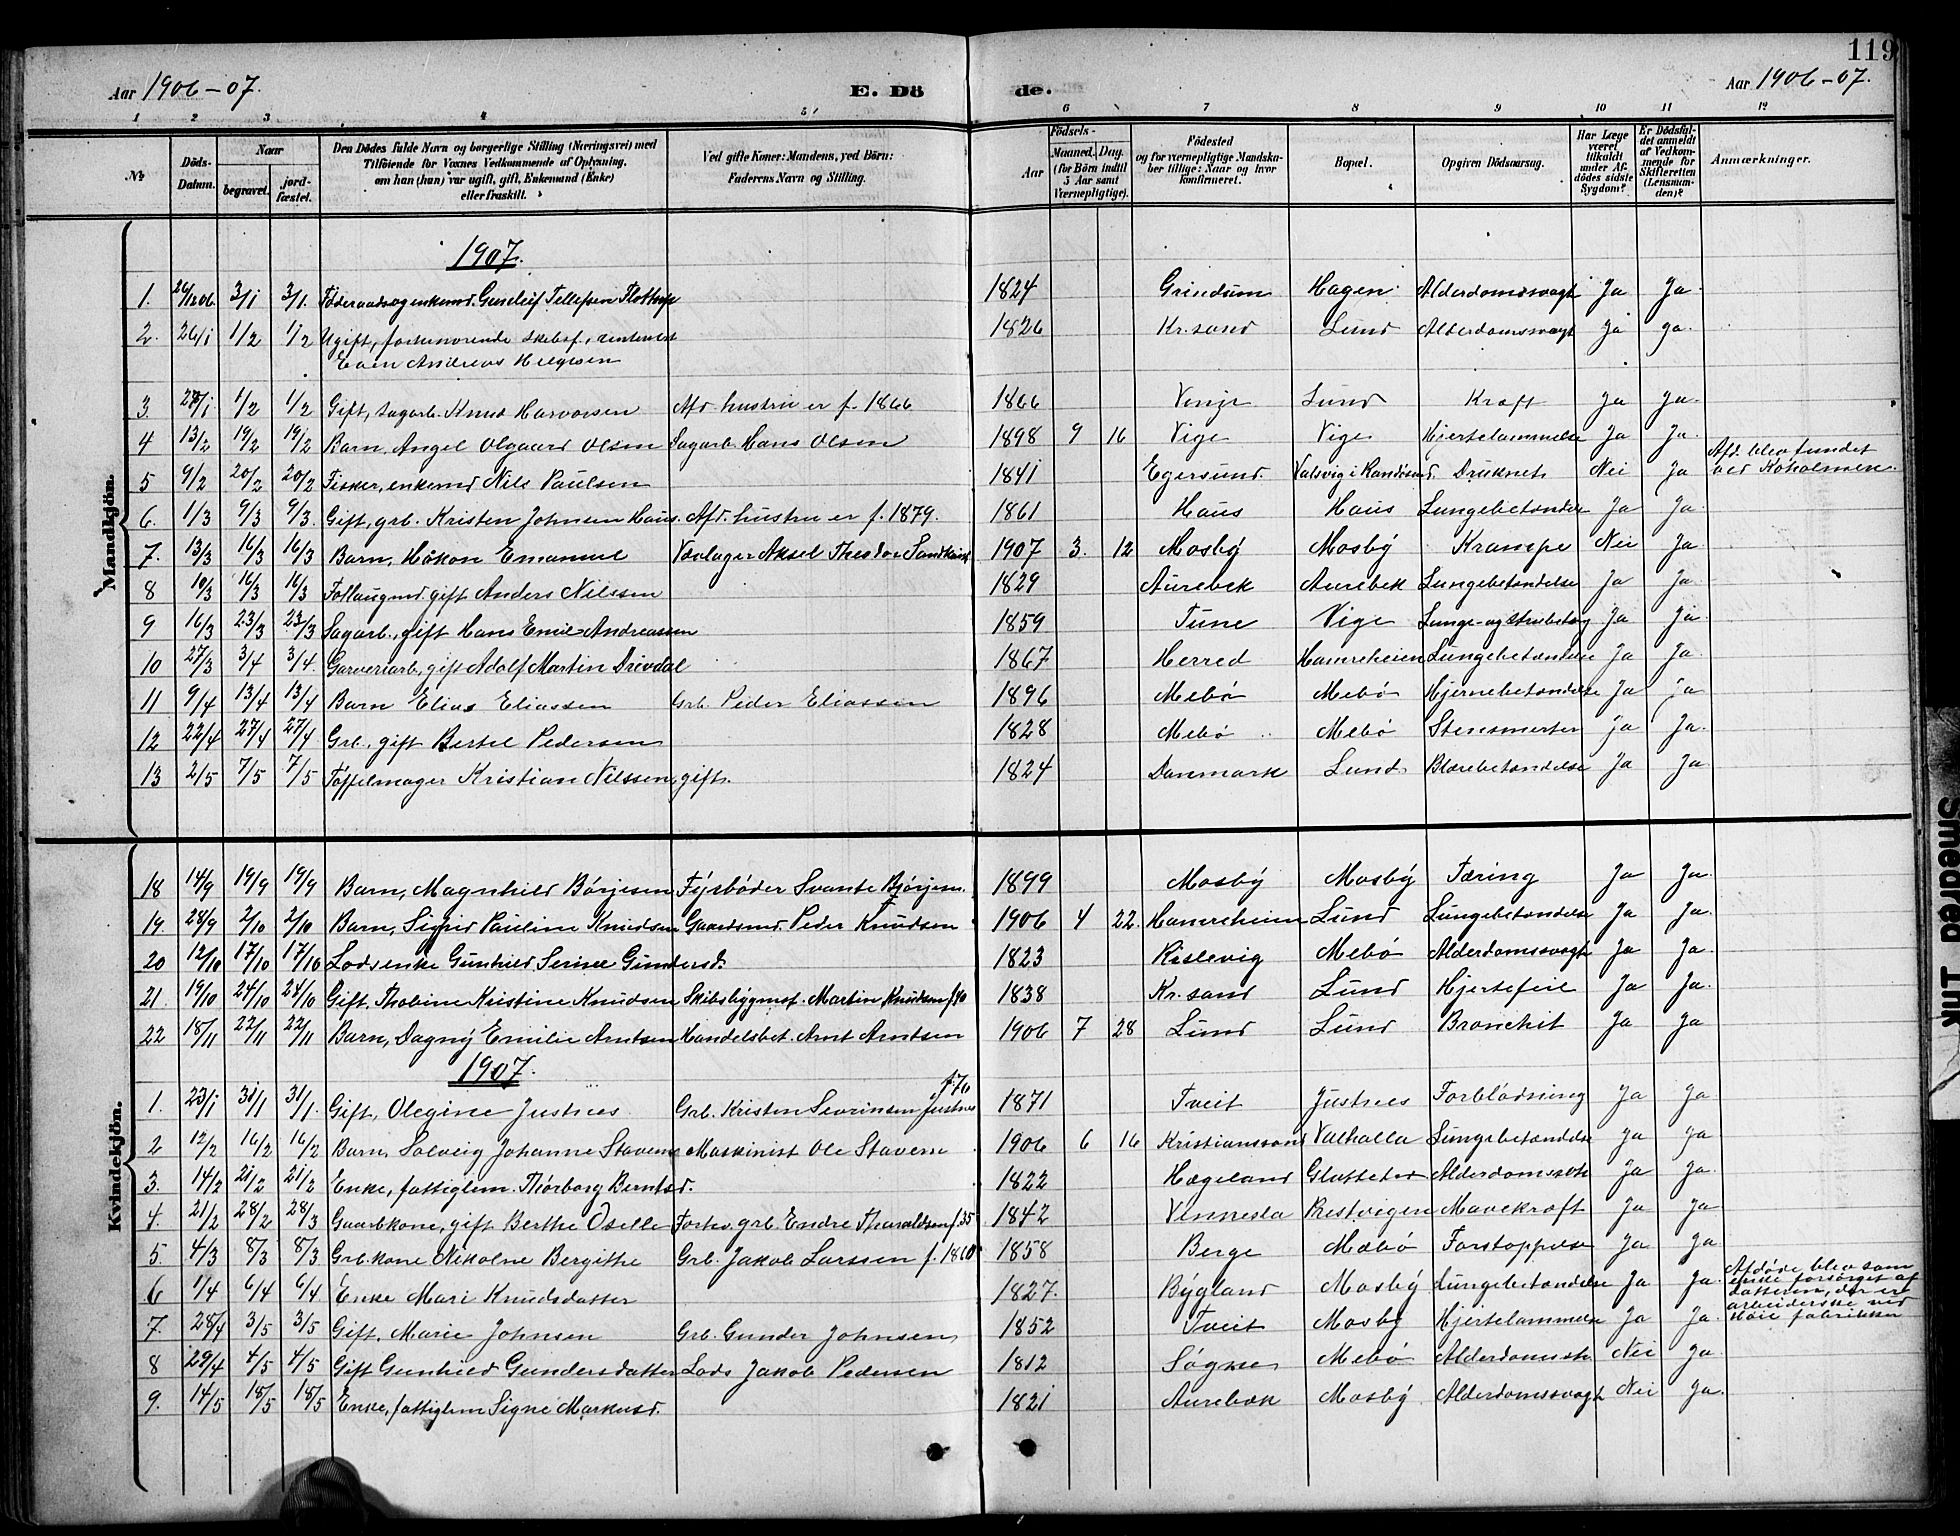 119
Aar 1906-07.
E. Dö
de.
Aar 1906-07.
1 2 3 4 5 6 7 8 9 10 11 12
No
Döds-Datum.
Naar
begravet.
jord-fæstet.
Den Dödes fulde Navn og borgerlige Stilling (Næringsvei) med
Tilföiende for Voxnes Vedkommende af Oplysning,
om han (hun) var ugift, gift, Enkemand (Enke)
eller fraskilt.
Ved gifte Koner: Mandens, ved Börn:
Faderens Navn og Stilling.
Födsels-
Aar
Maaned. Dag.
(for Börn indtil
5 Aar samt
Værnepligtige).
Födested
og for værnepligtige Mandska-
ber tillige: Naar og hvor
konfirmeret.
Bopæl.
Opgiven Dödsaarsag.
Har Læge
været
tilkaldt
under Af-
dödes sidste
Sygdom?
Er Dödsfal-
det anmeldt
af Vedkom-
mende for
Skifteretten
(Lensman-
den)?
Anmærkninger.
Mandkjön.
1907.
1. 26/12 06. 3/1 3/1. Föderaadsog enkemd. Gundleif Tellefsen Flottorp 1824 Grindum Hagen Alderdomssvagt Ja Ja.
2. 26/1 1/2 1/2 Ugift, forhenværende skibsf., rentenist 1826 Kr.sand Lund Alderdomssvagt Ja ja.
Even Andreas Helgesen
3. 1/2 1/2 Gift, sagarb. Knud Harvorsen Afd. hustru er f. 1866 1866 Vinje Lund Kræft Ja Ja.
4 13/2 19/2 19/2 Barn, Angel Olgaard Olsen Sagarb. Hans Olsen 1898 9 16 Vige Vige Hjertelammelse Ja Ja.
5 9/2 20/2 20/2 Fisker, enkemd Nils Paulsen 1841 Egersund. Valsvig i Randösund. Druknet Nei Ja Afd. blev fundet
ved Koholmen.
6. 1/3 9/3 9/3. Gift, grb. Kristen Johnsen Haus. Afd. hustru er f. 1879. 1861 Haus Haus Lungebetændelse Ja Ja.
7. 13/3 16/3 16/3 Barn, Håkon Emanuel Vævlager Aksel Theodor Sandkvist 1907 3. 12 Mosbÿ Mosbÿ Krampe Nei Ja
8 10/3 16/3 16/3 Follaugmd. gift Anders Nilssen 1829 Aurebek Aurebek Lungebetændelse Ja Ja.
9 16/3 23/3 23/3 Sagarb., gift Hans Emil Andreassen 1859 Tune Vige Lunge- og Ja Ja.
10 27/3 3/4 3/4. Garveriarb, gift Adolf Martin Drivdal 1867 Herred Hamreheien Lungebetændelse Ja Ja
11 9/4 13/4 13/4 Barn Elias Eliassen Grb. Peder Eliassen 1896 Mebø Mebø Hjernebetændelse Ja ja
12 22/4 27/4 27/4 Grb., gift Bertel Pedersen 1828 Mebø Mebø Stensmerter Ja Ja.
13 2/5 7/5 7/5 Töffelmager Kristian Nilssen, gift. 1824 Danmark Lund Blærebetændelse Ja Ja.
Kvindekjön.
18 14/9 19/9 19/9 Barn, Magnhild Børjesen Fÿrbøder Svante Bjørjesen. 1899 Mosbÿ Mosbÿ Tæring Ja Ja.
19 28/9 2/10 2/10 Barn, Sigrid Pauline Knudsen Gaardsmd. Peder Knudsen 1906 4 22. Hamreheien Lund Lungebetændelse Ja Ja.
20 12/10 17/10 17/10 Lodsenke Gunhild Serine Gundersd. 1823 Kislevig Mebø Alderdomssvagt Ja Ja.
21. 19/10 24/10 24/10 Gift, Thobine Kristine Knudsen Skibsbÿgmst. Martin Knudsen f. 40 1838 Kr.sand Lund Hjertefeil Ja Ja.
22 18/11 22/11 22/11 Barn, Dagnÿ Emilie Arntsen Handelsbet. Arnt Arntsen 1906 7 28 Lund Lund Bronchit Ja Ja
1907.
1. 23/1 31/1 31/1. Gift, Olegine Justnes Grb. Kristen Sevrinsen Justnes f. 70 1871 Tveit Justnes Forblödning Ja Ja
2 12/2 16/2 16/2 Barn, Solveig Johanne Stavens Maskinist Ole Stavern 1906 6 16 Kristianssand Valhalla Lungebetændelse Ja Ja
3. 14/2 21/2 21/2 Enke, fattiglem. Thorborg Berntsd. 1822 Hægeland Alderdomssvk Ja Ja.
4. 21/2 28/2 28/3 Gaardkone, gift Berthe Oselle Forhv. grb. Endre Tharaldsen f. 35 1842 Vennesla Prestvigen Mavekræft Ja Ja
5. 4/3 8/3 8/3 Grb.kone Nikolne Bergithe Grb. Jakob Larssen f. 1860 1858 Berge Mæbø Forstoppelse Ja Ja
6 1/4 6/4 6/4 Enke Mari Knudsdatter 1827. Bÿgland Mosbÿ Lungebetændelse Ja Ja. Afdøde blev som
enke forsørget af
datteren, der er
arbeiderske ved
Høie fabrikker
7. 28/4 3/5 3/5 Gift, Marie Johnsen Grb. Gunder Johnsen 1852 Tveit Mosbÿ Hjertelammelse Ja Ja.
8 29/4 4/5 4/5 Gift Gunhild Gundersdatter Lods Jakob Pedersen 1812 Søgne Mebø Alderdomssk Nei Ja.
9. 14/5 18/5 18/5 Enke, fattiglem Signe Markusd. 1821 Aurebæk Mosbÿ Alderdomssvagt Nei Ja.